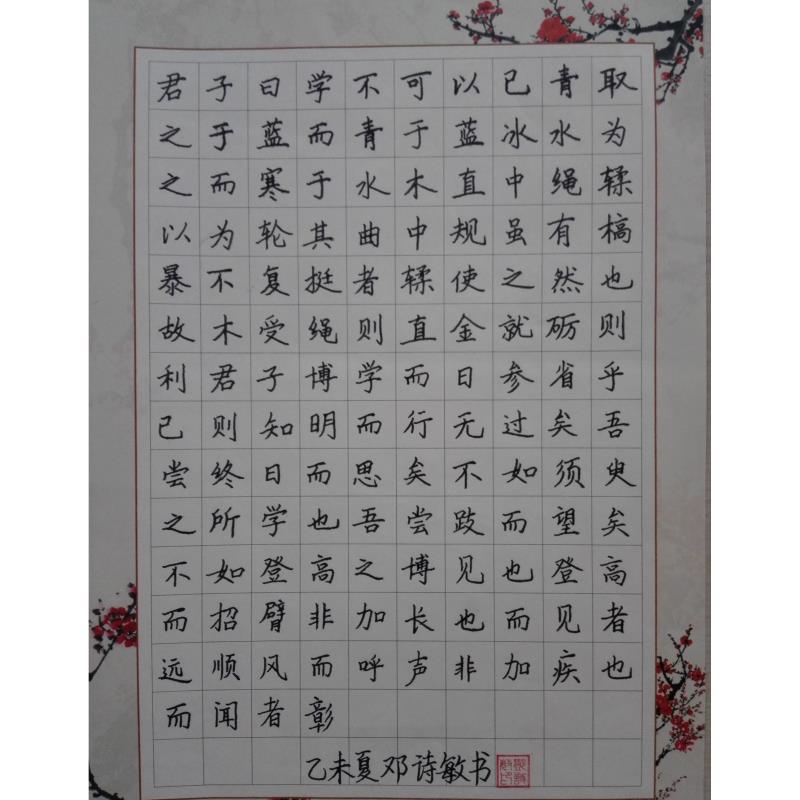 君子曰学不可以已青取
之于蓝而青于蓝冰水为
之而寒于水木直中绳𫐓
以为轮其曲中规虽有槁
暴不复挺者𫐓使之然也
故木受绳则直金就砺则
利君子博学而日参省乎
己则知明而行无过矣吾
尝终日而思矣不如须臾
之所学也吾尝跂而望矣
不如登高之博见也登高
而招臂非加长也而见者
远顺风而呼声非加疾也
而闻者彰
乙未夏邓诗敏书